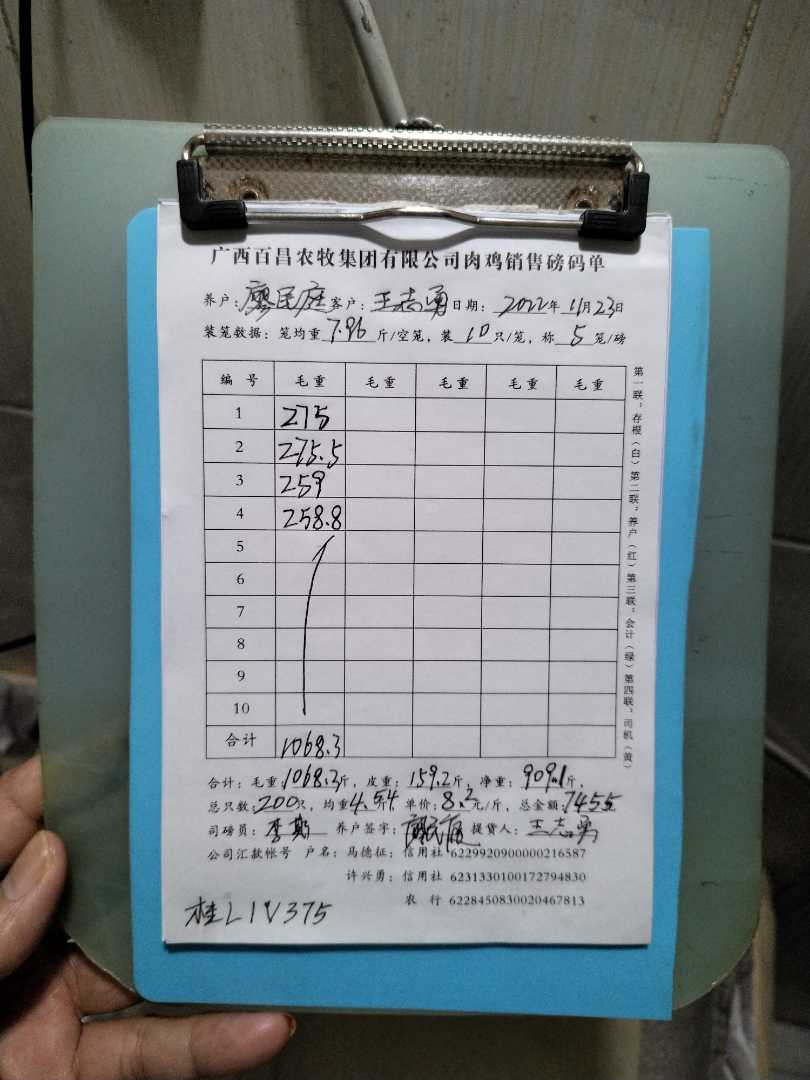 广西百昌农牧集团有限公司肉鸡销售磅码单
养户：廖民庭 客户：王志勇 日期：2022年11月23日
装笼数据：笼均重 7.96 斤/空笼，装 10 只/笼，称 5 笼/磅
编号 毛重 毛重 毛重 毛重 毛重
1 275
2 275.5
3 259
4 258.8
5
6
7
8
9
10
合计 1068.3
合计：毛重：1068.3斤，皮重：159.2斤，净重：909.1斤，
总只数：200只，均重4.54 单价：8.2元/斤，总金额：7455
司磅员：李 养户签字：廖民庭 提货人：王志勇
公司汇款帐号 户名：马德征：信用社 6229920900000216587
许兴勇：信用社 6231330100172794830
农 行 6228450830020467813
桂L1V375
第一联：存根（白）第二联：养户（红）第三联：会计（绿）第四联：司机（黄）